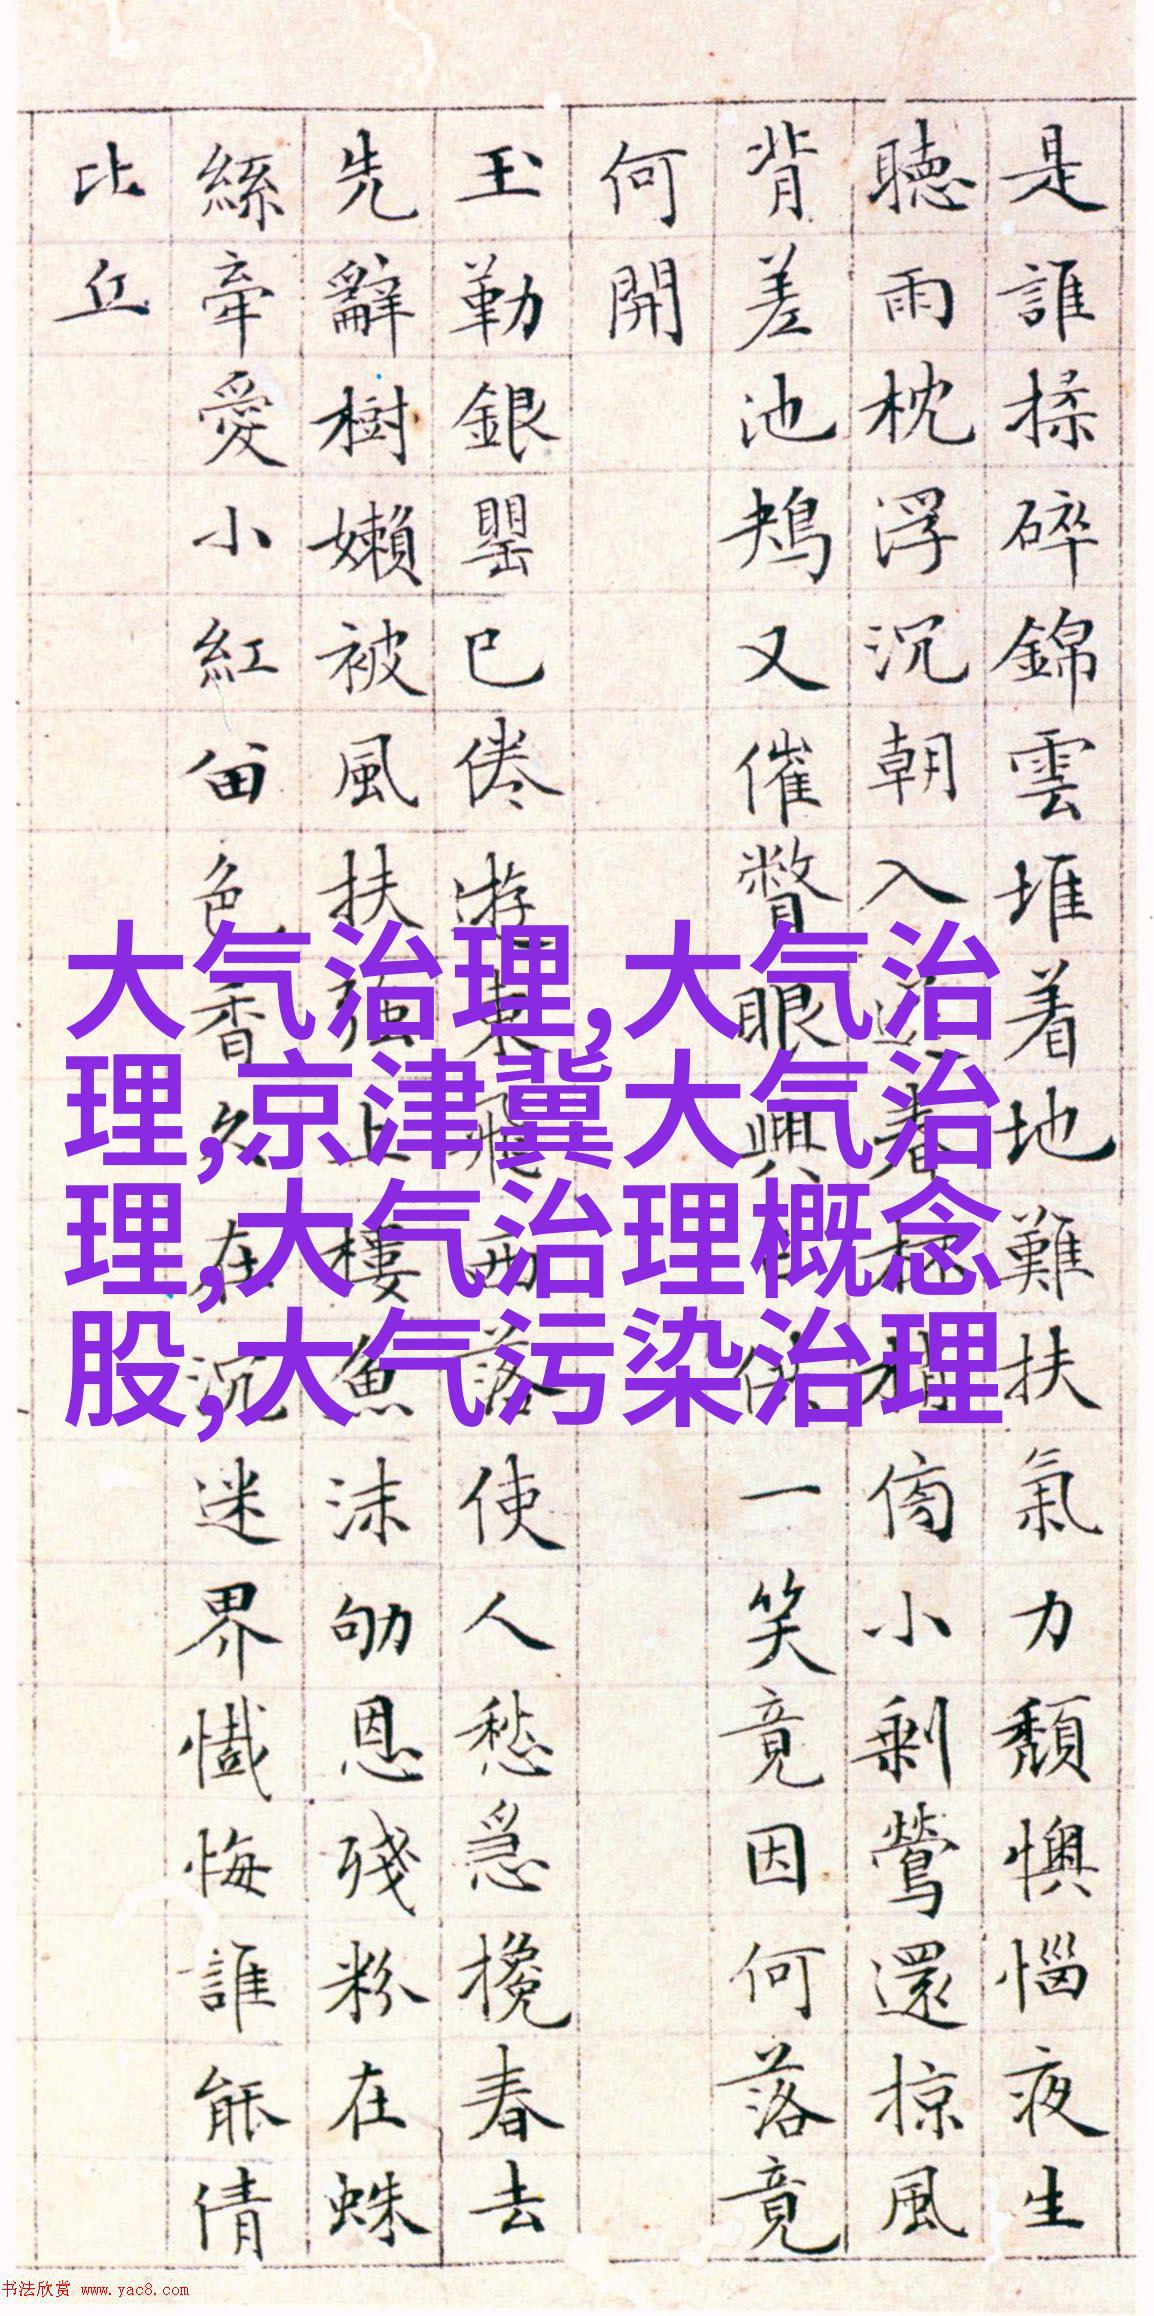 是誰揉碎錦雲堆着地難扶氣力頹懊惱夜生
聽雨枕浮沉朝入送春杯梢傍小剩鶯還掠風
背差池鴂又催瞥眼興亡供一笑竟因何落竟
何開
玉勒銀罌已倦游東飛西落使人愁急攙春去
先辭樹嬾被風扶強上樓魚沫劬恩殘粉在蛛
絲牽愛小紅留色香久在沉迷界懺悔誰能倩
比丘
大气治理,大气治
理,京津冀大气治
理,大气治理概念
股,大气污染治理
书法欣赏 www.yac8.com